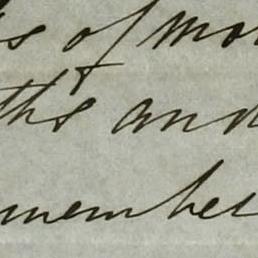 of mo
ths and
member